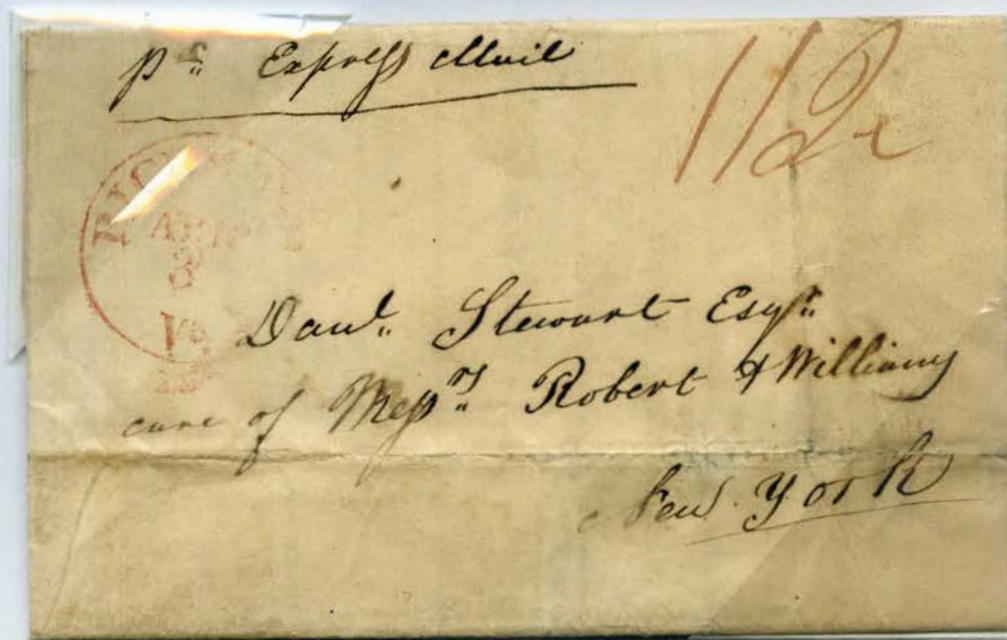 pr Express Mail
112½
APR
8
Va
Danl. Stewart Esqr.
care of Messrs. Robert & Williams
New York